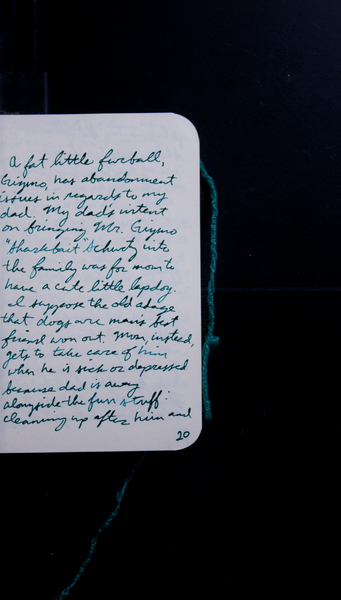 A fat little furball,
Gizmo, has abandonment
issues in regards to my
dad. My dad's intent
on bringing Mr. Gizmo
"Sharkbait" Schurtz into
the family was for mom to
have a cute little lapdog.
I suppose the old adage
that dogs are man's best
friend won out. Mom, instead,
gets to take care of him
when he is sick or depressed
because dad is away
alongside the fun stuff:
cleaning up after him and
20